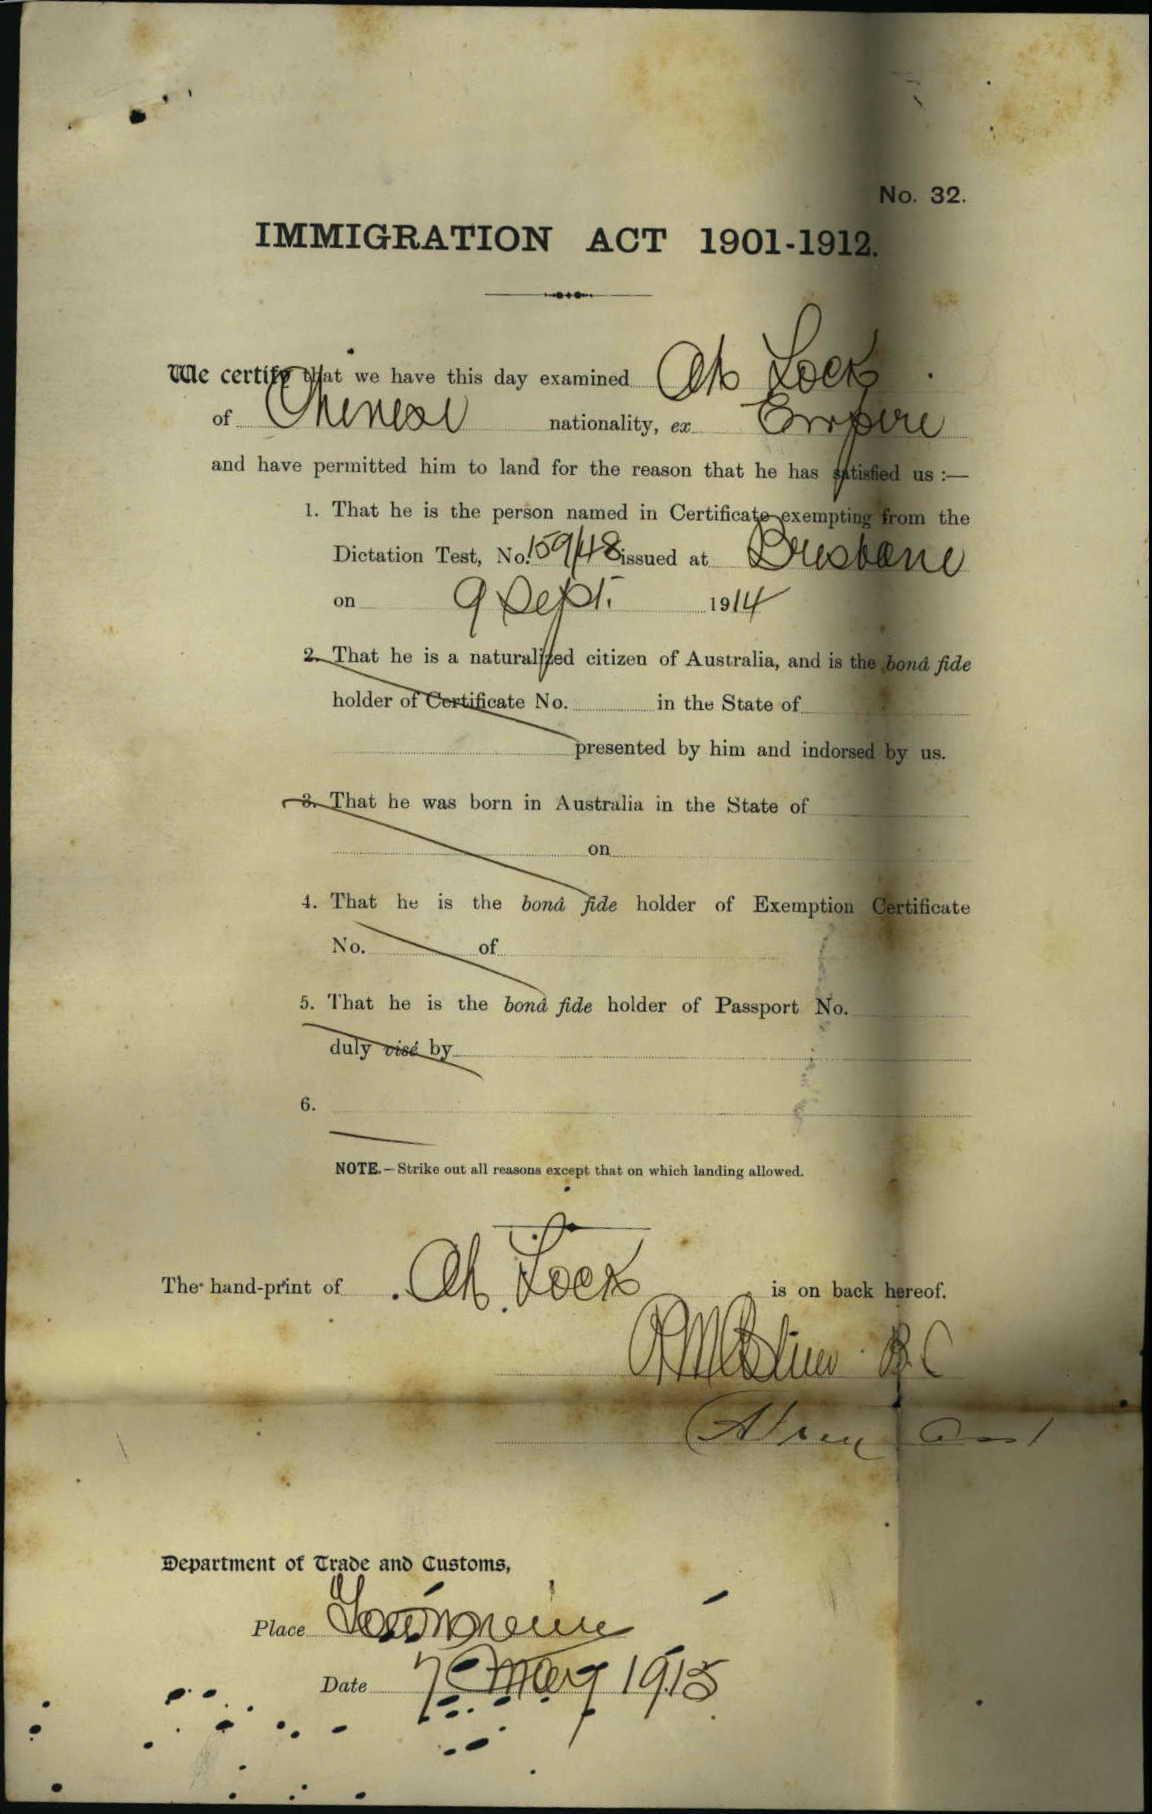 No. 32.
IMMIGRATION ACT 1901-1912.
We certify that we have this day examined Ah Lock
of Chinese nationality, ex Empire
and have permitted him to land for the reason that he has satisfied us :—
1. That he is the person named in Certificate exempting from the
Dictation Test, No. 159/48 issued at Brisbane
on 9 Sept. 1914
2. That he is a naturalized citizen of Australia, and is the bonâ fide
holder of Certificate No. in the State of
presented by him and indorsed by us.
3. That he was born in Australia in the State of
on
4. That he is the bonâ fide holder of Exemption Certificate
No. of
5. That he is the bonâ fide holder of Passport No.
duly visé by
6.
NOTE.—Strike out all reasons except that on which landing allowed.
The hand-print of Ah Lock is on back hereof.
Department of Trade and Customs,
Place Townsville
Date 7 May 1915